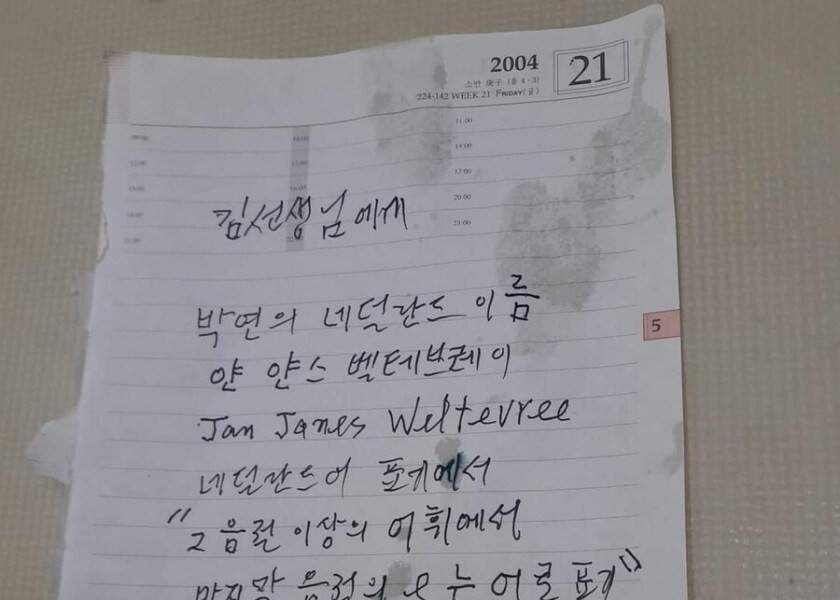 2004
21
소만 庚子 (음 4·3)
224-142 WEEK 21 FRIDAY(금)
09:00
10:00
11:00
12:00
13:00
14:00
15:00
16:00
17:00
18:00
20:00
21:00
23:00
5
김선생님에게
박연의 네덜란드 이름
얀 얀스 벨테브레이
Jan Janes Weltevree
네덜란드어 표기에서
"2음절 이상의 어휘에서
마지막 음절의 e는 어로 표기"